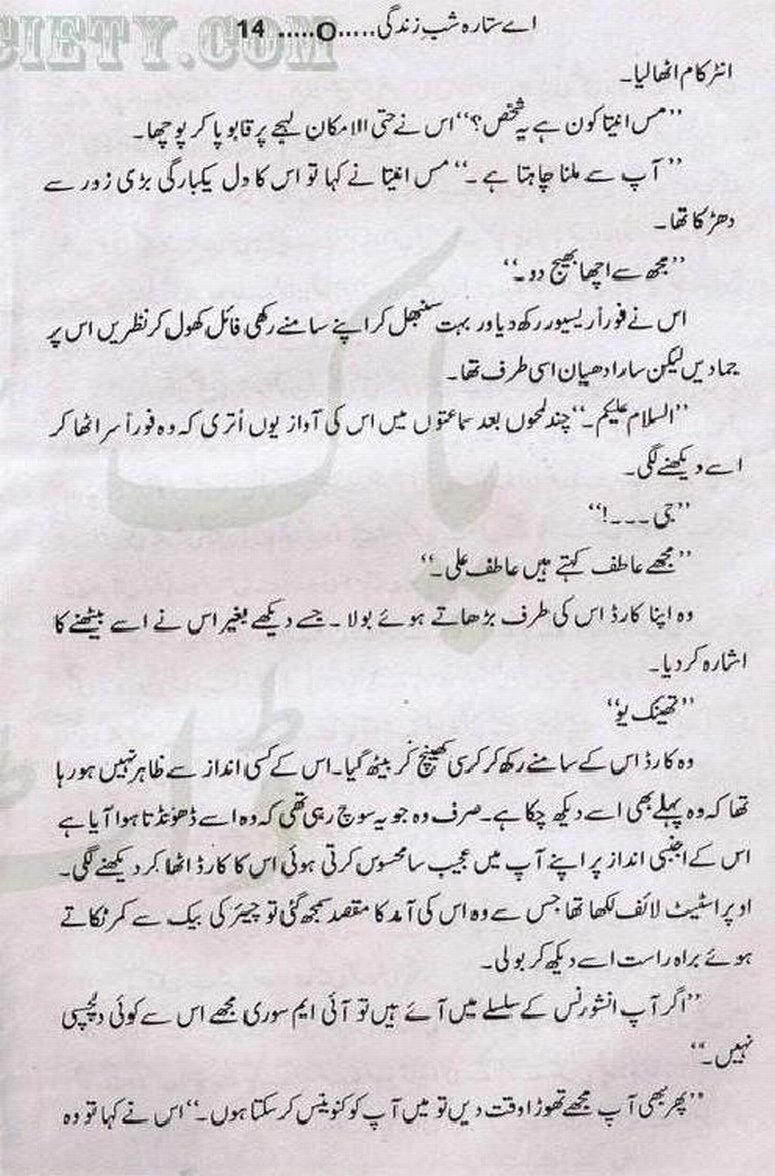 CIETY.COM
اے ستارہ شب زندگی.....O..... 14
انٹر کام اٹھا لیا۔
’’مس انیتا کون ہے یہ شخص؟‘‘ اس نے حتی الامکان لہجے پر قابو پا کر پوچھا۔
’’آپ سے ملنا چاہتا ہے۔‘‘ مس انیتا نے کہا تو اس کا دل یکبارگی بڑی زور سے
دھڑکا تھا۔
’’مجھ سے اچھا بھیج دو۔‘‘
اس نے فوراً ریسیور رکھ دیا ور بہت سنبھل کر اپنے سامنے رکھی فائل کھول کر نظریں اس پر
جما دیں لیکن سارا دھیان اسی طرف تھا۔
’’السلام علیکم۔‘‘ چند لمحوں بعد سماعتوں میں اس کی آواز یوں اُتری کہ وہ فوراً سر اٹھا کر
اسے دیکھنے لگی۔
’’جی ۔۔۔!‘‘
’’مجھے عاطف کہتے ہیں عاطف علی۔‘‘
وہ اپنا کارڈ اس کی طرف بڑھاتے ہوئے بولا۔ جسے دیکھے بغیر اس نے اسے بیٹھنے کا
اشارہ کر دیا۔
’’تھینک یو‘‘
وہ کارڈ اس کے سامنے رکھ کر کرسی کھینچ کر بیٹھ گیا۔ اس کے کسی انداز سے ظاہر نہیں ہو رہا
تھا کہ وہ پہلے بھی اسے دیکھ چکا ہے۔ صرف وہ جو یہ سوچ رہی تھی کہ وہ اسے ڈھونڈتا ہوا آیا ہے
اس کے اجنبی انداز پر اپنے آپ میں عجیب سا محسوس کرتی ہوئی اس کا کارڈ اٹھا کر دیکھنے لگی۔
اوپر اسٹیٹ لائف لکھا تھا جس سے وہ اس کی آمد کا مقصد سمجھ گئی تو چیئر کی بیک سے کمر ٹکاتے
ہوئے براہ راست اسے دیکھ کر بولی۔
’’اگر آپ انشورنس کے سلسلے میں آئے ہیں تو آئی ایم سوری مجھے اس سے کوئی دلچسپی
نہیں۔‘‘
’’پھر بھی آپ مجھے تھوڑا وقت دیں تو میں آپ کو کنوینس کر سکتا ہوں۔‘‘ اس نے کہا تو وہ